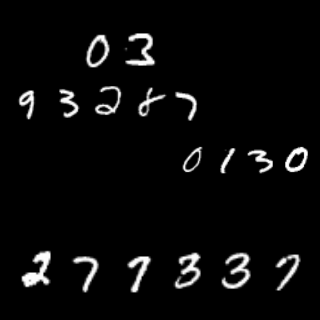 03
93287
0130
277337